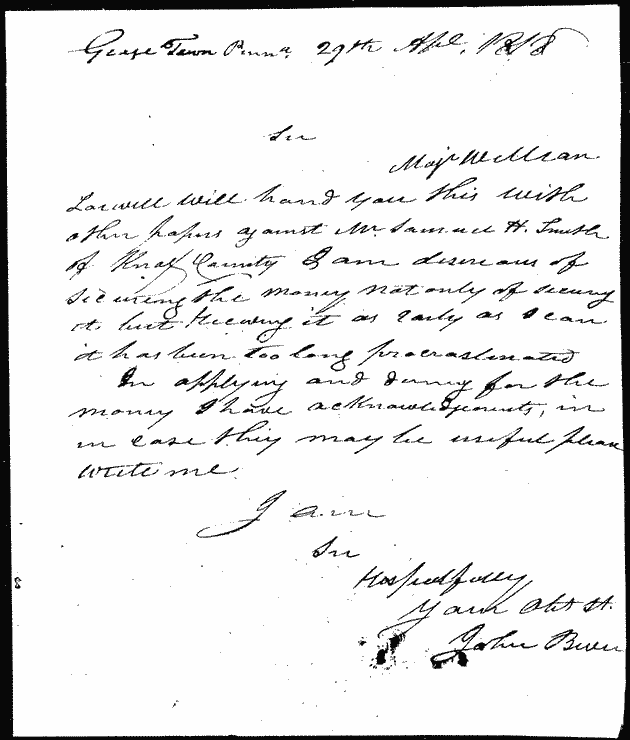 George Town Penna. 29th Apl. 1818
Sir
Majr William
Larwill will hand you this with
other papers against Mr. Samuel H. Smith
of Knox County I am desireous of
securing the money not only of securing
it but having it as early as I can
it has been too long procrastinated
In applying and duning for the
money I have acknowledgements, in
in case they may be useful please
write me
I am
Sir
Respectfully
Your Obt St.
John Bever